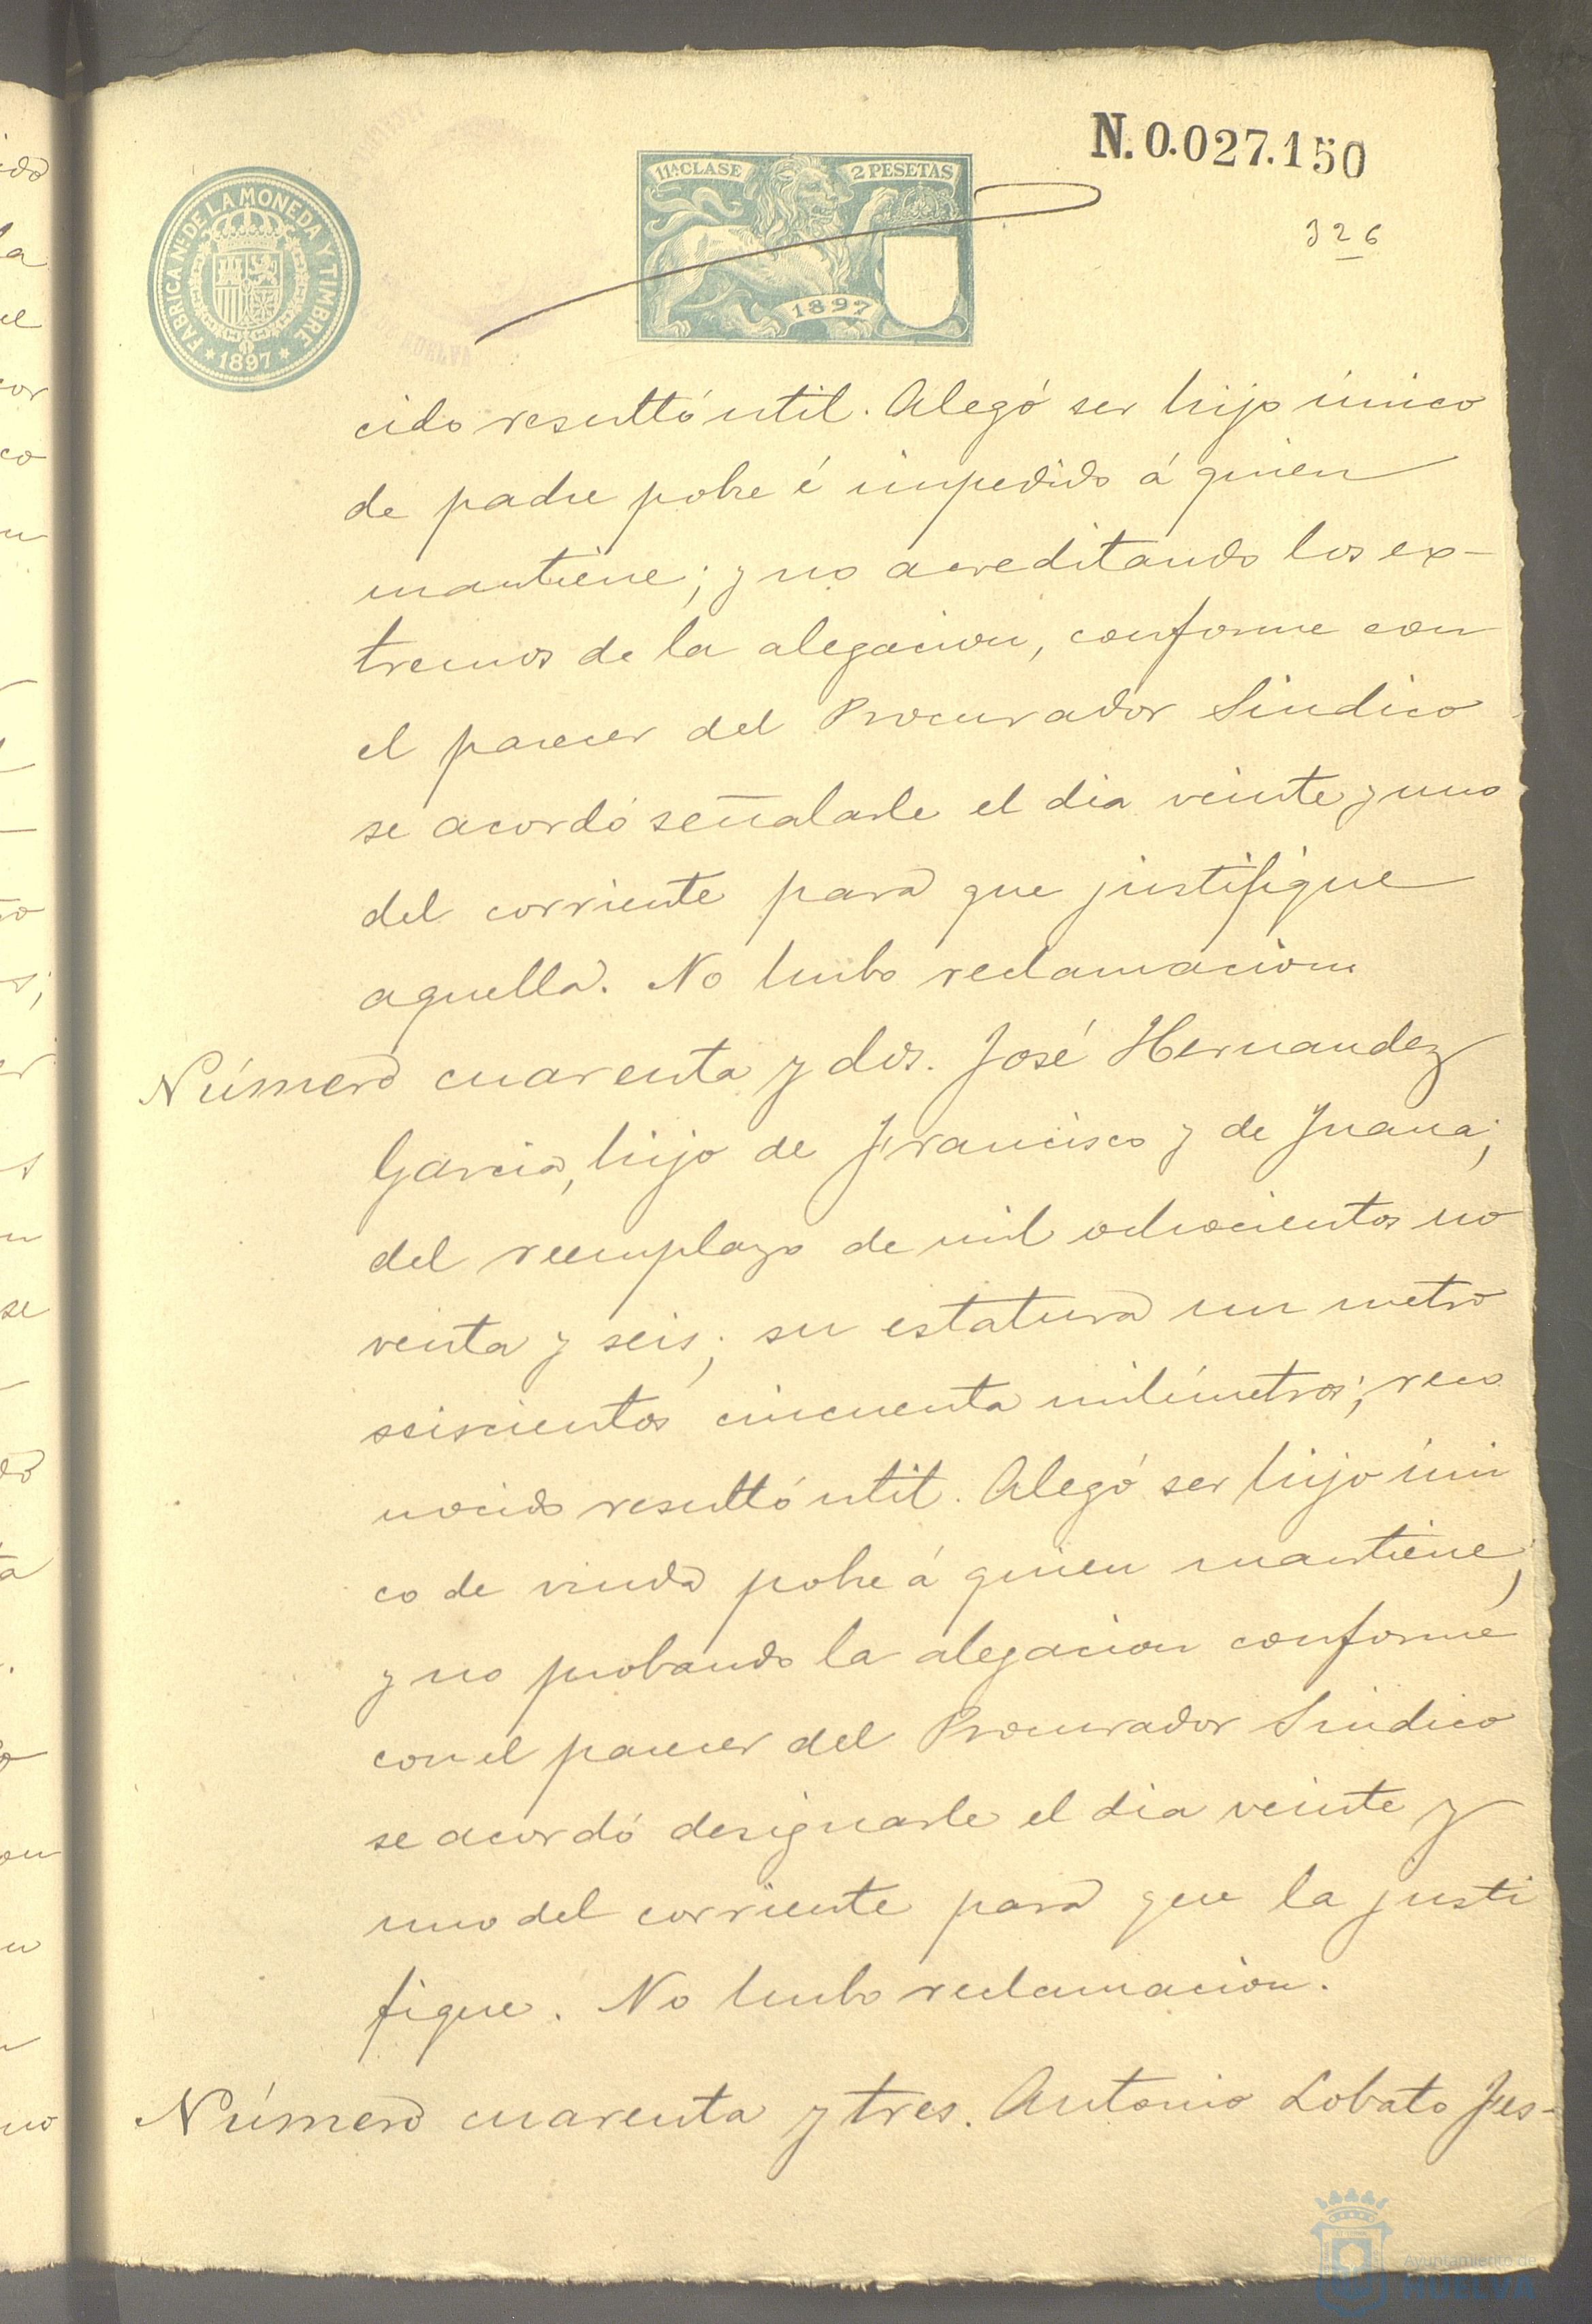 N. 0.027.150
326
FABRICA Nl. DE LA MONEDA Y TIMBRE
* 1897 *
11ª CLASE
2 PESETAS
1897
HUELVA
cido resultó util. Alegó ser hijo único
de padre pobre é impedido á quien
mantiene; y no acreditando los ex-
tremos de la alegacion, conforme con
el parecer del Procurador Sindico
se acordó señalarle el dia veinte y uno
del corriente para que justifique
aquella. No hubo reclamacion
Número cuarenta y dos. José Hernandez
Garcia, hijo de Francisco y de Juana;
del reemplazo de mil ochocientos no
venta y seis; su estatura un metro
seiscientos cincuenta milímetros; reco
nocido resultó util. Alegó ser hijo úni
co de viuda pobre á quien mantiene;
y no probando la alegacion conforme
con el parecer del Procurador Sindico
se acordó designarle el dia veinte y
uno del corriente para que la justi
fique. No hubo reclamacion.
Número cuarenta y tres. Antonio Lobato Jes-
Ayuntamiento de
HUELVA